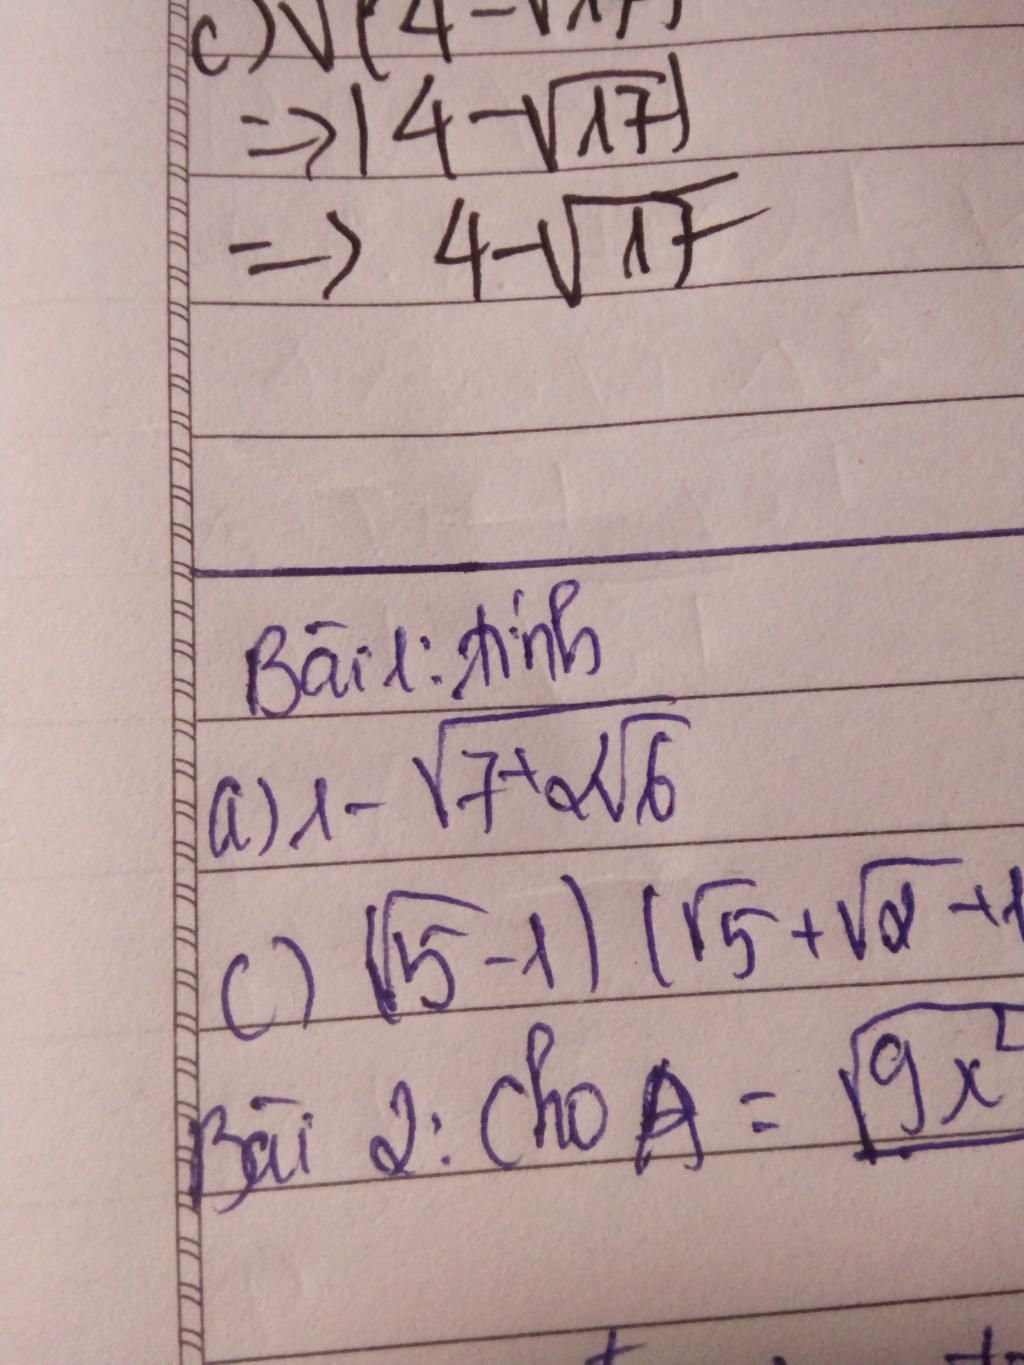 c) √(4-√17)
=> |4-√17|
=> 4-√17
Bài 1: tính
a) 1- √7+2√6
c) (√5-1) (√5+√2+1
Bài 2: Cho A = √9x²